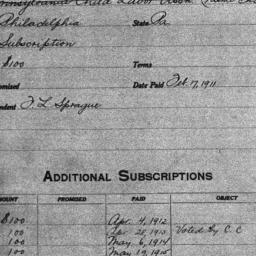 Pennsylvania Child Labor Assn.
Philadelphia State Pa
Subscription
$100 Terms
Promised Date Paid Feb. 17, 1911
F L Sprague
ADDITIONAL SUBSCRIPTIONS
AMOUNT PROMISED PAID OBJECT
$100 Apr. 4, 1912
100 Jan 28, 1913 Voted by C.C
100 May 6, 1914
100 May 19, 1915